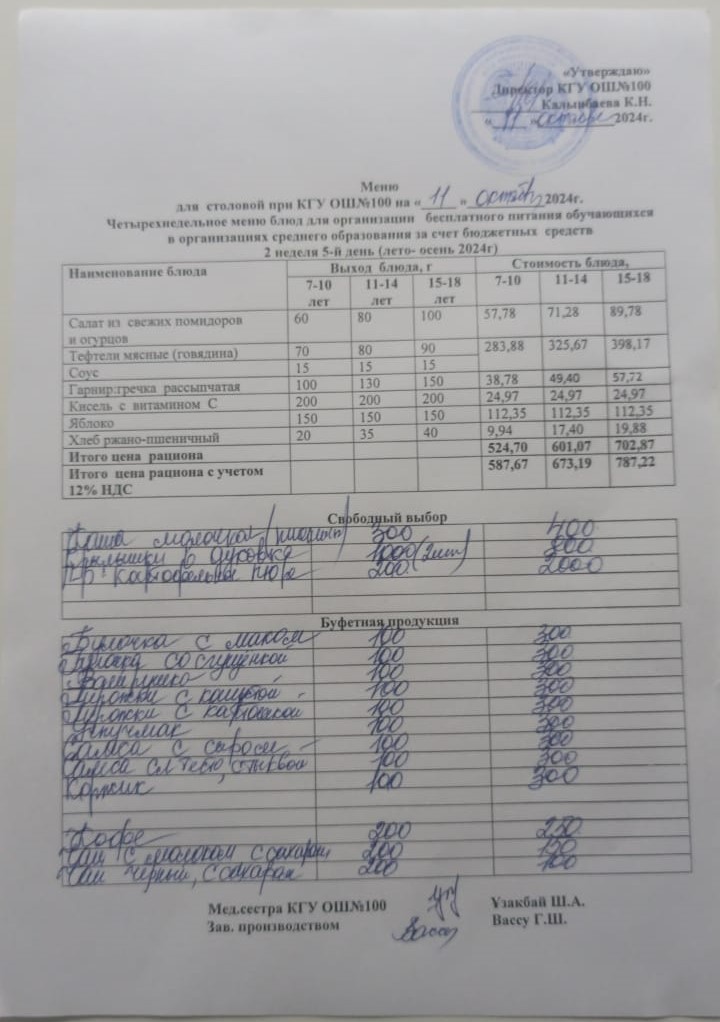 «Утверждаю»
Директор КГУ ОШ№100
Калынбаева К.Н.
« 11 » октябрь 2024г.
Меню
для столовой при КГУ ОШ№100 на « 11 » октябрь 2024г.
Четырехнедельное меню блюд для организации бесплатного питания обучающихся
в организациях среднего образования за счет бюджетных средств
2 неделя 5-й день (лето- осень 2024г)
Наименование блюда Выход блюда, г Стоимость блюда,
7-10 лет 11-14 лет 15-18 лет 7-10 11-14 15-18
Салат из свежих помидоров и огурцов 60 80 100 57,78 71,28 89,78
Тефтели мясные (говядина) 70 80 90 283,88 325,67 398,17
Соус 15 15 15
Гарнир:гречка рассыпчатая 100 130 150 38,78 49,40 57,72
Кисель с витамином С 200 200 200 24,97 24,97 24,97
Яблоко 150 150 150 112,35 112,35 112,35
Хлеб ржано-пшеничный 20 35 40 9,94 17,40 19,88
Итого цена рациона 524,70 601,07 702,87
Итого цена рациона с учетом 12% НДС 587,67 673,19 787,22
Свободный выбор
Каша молочная 300 400
Крылышки в духовке 1000 (2шт) 800
Гр: картофельное пюре 200 2000
Буфетная продукция
Булочка с маком 100 300
Булочка со сгущенкой 100 300
100 300
Пирожки с капустой 100 300
Пирожки с картошкой 100 300
Учпучмак 100 300
Самса с сыром 100 300
Самса сл тесто, с тыквой 100 300
Коржик 100 300
Кофе 200 250
Чай с молоком с сахаром 200 150
Чай черный, с сахаром 200 100
Мед.сестра КГУ ОШ№100 Узакбай Ш.А.
Зав. производством Вассу Г.Ш.